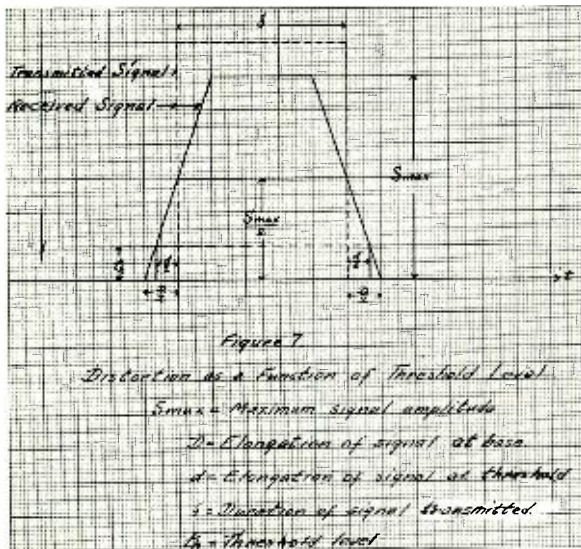 Transmitted Signal
Received Signal
Smax
Smax
2
D
2
D
2
t
Figure 7
Distortion as a Function of Threshold Level
Smax = Maximum signal amplitude
D = Elongation of signal at base
d = Elongation of signal at threshold
= Duration of signal transmitted
= Threshold level